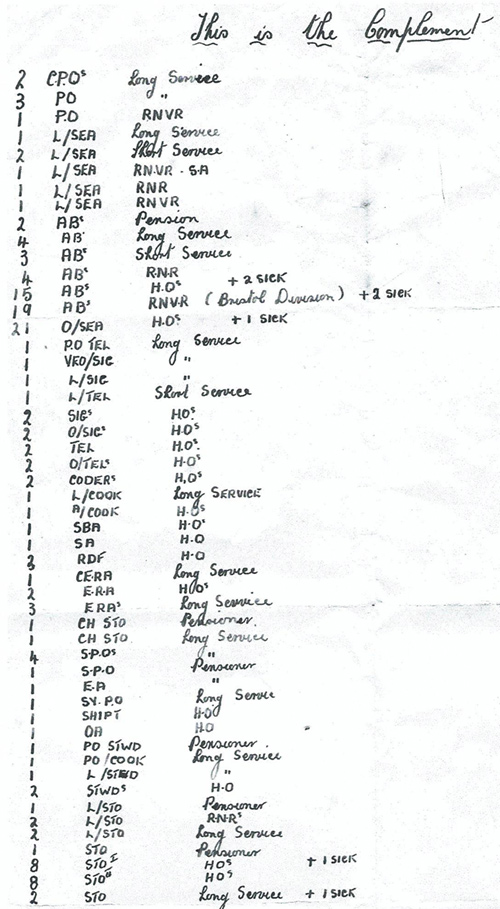 This is the Complement
2 CPOs Long Service
3 PO "
1 P.O RNVR
1 L/SEA Long Service
2 L/SEA Short Service
1 L/SEA RNVR - SA
1 L/SEA RNR
1 L/SEA RNVR
2 ABs Pension
4 ABs Long Service
3 ABs Short Service
4 ABs RNR
15 ABs H.Os + 2 SICK
19 ABs RNVR (Bristol Division) + 2 SICK
21 O/SEA H.Os + 1 SICK
1 P.O TEL Long Service
1 YEO/SIG "
1 L/SIG "
1 L/TEL Short Service
2 SIGs HOs
2 O/SIGs H.Os
2 TEL H.Os
2 O/TELs H.Os
2 CODERs H.Os
1 L/COOK Long SERVICE
1 A/COOK H.Os
1 SBA H.Os
1 SA H.O
2 RDF H.O
1 CERA Long Service
2 E.R.A HOs
3 ERAs Long Service
1 CH STO Pensioner.
1 CH STO Long Service
4 S.P.Os "
1 S.P.O Pensioner
1 E.A "
1 SY. P.O Long Service
1 SHIPT H.O
1 OA H.O
1 PO STWD Pensioner.
1 PO/COOK Long Service
1 L/STWD "
2 STWDs H.O
1 L/STO Pensioner
2 L/STO R.N.Rs
2 L/STO Long Service
1 STO Pensioner
8 STO I HOs + 1 SICK
8 STO II HOs
2 STO Long Service + 1 SICK